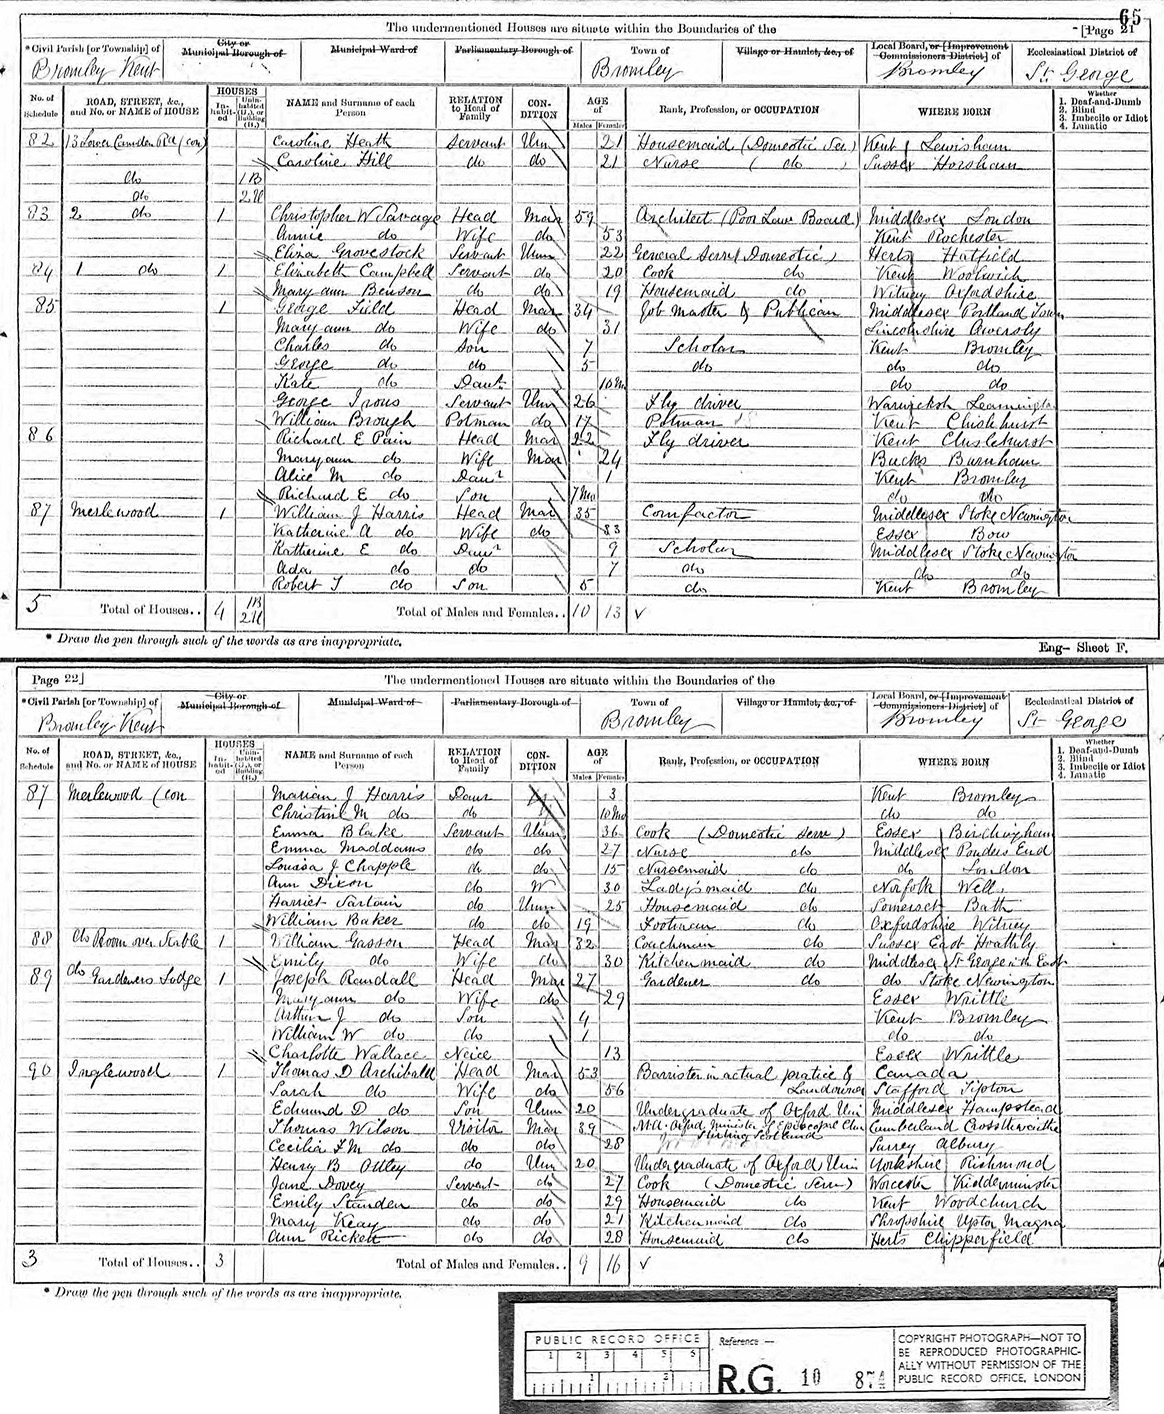 65
The undermentioned Houses are situate within the Boundaries of the [Page 21
*Civil Parish [or Township] of City or Municipal Borough of Municipal Ward of Parliamentary Borough of Town of Village or Hamlet, &c., of Local Board, or [Improvement Commissioners District] of Ecclesiastical District of
Bromley Kent Bromley Bromley St. George
No. of Schedule ROAD, STREET, &c., and No. or NAME of HOUSE HOUSES In-habit-ed Unin-habited (U.), or Building (B.) NAME and Surname of each Person RELATION to Head of Family CON-DITION AGE of Males Females Rank, Profession, or OCCUPATION WHERE BORN Whether 1. Deaf-and-Dumb 2. Blind 3. Imbecile or Idiot 4. Lunatic
82 13 Lower Camden Rd (con) Caroline Heath Servant Unm 21 Housemaid (Domestic Ser) Kent Lewisham
Caroline Hill do do 21 Nurse ( do ) Sussex Horsham
do 1 B
do 2 U
83 2 do 1 Christopher W Savage Head Mar 59 Architect (Poor Law Board) Middlesex London
Annie do Wife do 53 Kent Rochester
Eliza Grovestock Servant Unm 22 General Serv (Domestic) Herts Hatfield
84 1 do 1 Elizabeth Campbell Servant do 20 Cook do Kent Woolwich
Mary ann Benson do do 19 Housemaid do Witney Oxfordshire
85 1 George Field Head Mar 34 Job Master & Publican Middlesex Portland Town
Mary ann do Wife do 31 Lincolnshire
Charles do Son 7 Scholar Kent Bromley
George do do 5 do do do
Kate do Daur 10 Mo do do
George Irons Servant Unm 26 Fly driver Warwicksh Leamington
William Brough Potman do 17 Potman Kent Chislehurst
86 Richard E Pain Head Mar 22 Fly driver Kent Chislehurst
Maryann do Wife Mar 24 Bucks Burnham
Alice M do Daur 1 Kent Bromley
Richard E do Son 7 Mo do do
87 Merlewood 1 William J Harris Head Mar 35 Cornfactor Middlesex Stoke Newington
Katherine A do Wife do 33 Essex Bow
Katherine E do Daur 9 Scholar Middlesex Stoke Newington
Ada do do 7 do do do
Robert T do Son 5 do Kent Bromley
5 Total of Houses.. 4 1B 2U Total of Males and Females.. 10 13 ✓
* Draw the pen through such of the words as are inappropriate.
Eng- Sheet F.
Page 22] The undermentioned Houses are situate within the Boundaries of the
*Civil Parish [or Township] of City or Municipal Borough of Municipal Ward of Parliamentary Borough of Town of Village or Hamlet, &c., of Local Board, or [Improvement Commissioners District] of Ecclesiastical District of
Bromley Kent Bromley Bromley St George
No. of Schedule ROAD, STREET, &c., and No. or NAME of HOUSE HOUSES In-habit-ed Unin-habited (U.), or Building (B.) NAME and Surname of each Person RELATION to Head of Family CON-DITION AGE of Males Females Rank, Profession, or OCCUPATION WHERE BORN Whether 1. Deaf-and-Dumb 2. Blind 3. Imbecile or Idiot 4. Lunatic
87 Merlewood (con Marian J Harris Daur 3 Kent Bromley
Christine M do do 10 Mo do do
Emma Blake Servant Unm 36 Cook (Domestic Serv) Essex
Emma Maddams do do 27 Nurse do Middlesex Ponders End
Louisa J Chapple do do 15 Nursemaid do do London
Ann Dixon do W 30 Ladysmaid do Norfolk Well
Harriet Sartain do Unm 25 Housemaid do Somerset Bath
William Baker do do 19 Footman do Oxfordshire Witney
88 do Room over Stable 1 William Gasson Head Mar 32 Coachman do Sussex East Hoathly
Emily do Wife do 30 Kitchenmaid do Middlesex St George in the East
89 do Gardeners Lodge 1 Joseph Randall Head Mar 27 Gardener do do Stoke Newington
Maryann do Wife do 29 Essex Writtle
Arthur J do Son 4 Kent Bromley
William W do do 1 do do
Charlotte Wallace Neice 13 Essex Writtle
90 Inglewood 1 Thomas D Archibald Head Mar 53 Barrister in actual pratice & Canada
Sarah do Wife do 56 Landowner Stafford Tipton
Edmund D do Son Unm 20 Undergraduate of Oxford Uni Middlesex Hampstead
Thomas Wilson Visitor Mar 39 M.A. Oxford Minister of Episcopal Chu Cumberland Crossthwaite
Cecilia F M do do do 28 Stirling Scotland Surrey Albury
Henry B Ottley do Unm 20 Undergraduate of Oxford Uni Yorkshire Richmond
Jane Dovey Servant do 27 Cook (Domestic Serv) Worcester Kidderminster
Emily Standen do do 29 Housemaid do Kent Woodchurch
Mary Keay do do 21 Kitchenmaid do Shropshire Upton Magna
Ann Rickett do do 28 Housemaid do Herts Chipperfield
3 Total of Houses.. 3 Total of Males and Females.. 9 16 ✓
* Draw the pen through such of the words as are inappropriate.
PUBLIC RECORD OFFICE
1 2 3 4 5 6
1 2
Reference —
R.G. 10 874
COPYRIGHT PHOTOGRAPH—NOT TO
BE REPRODUCED PHOTOGRAPHIC-
ALLY WITHOUT PERMISSION OF THE
PUBLIC RECORD OFFICE, LONDON